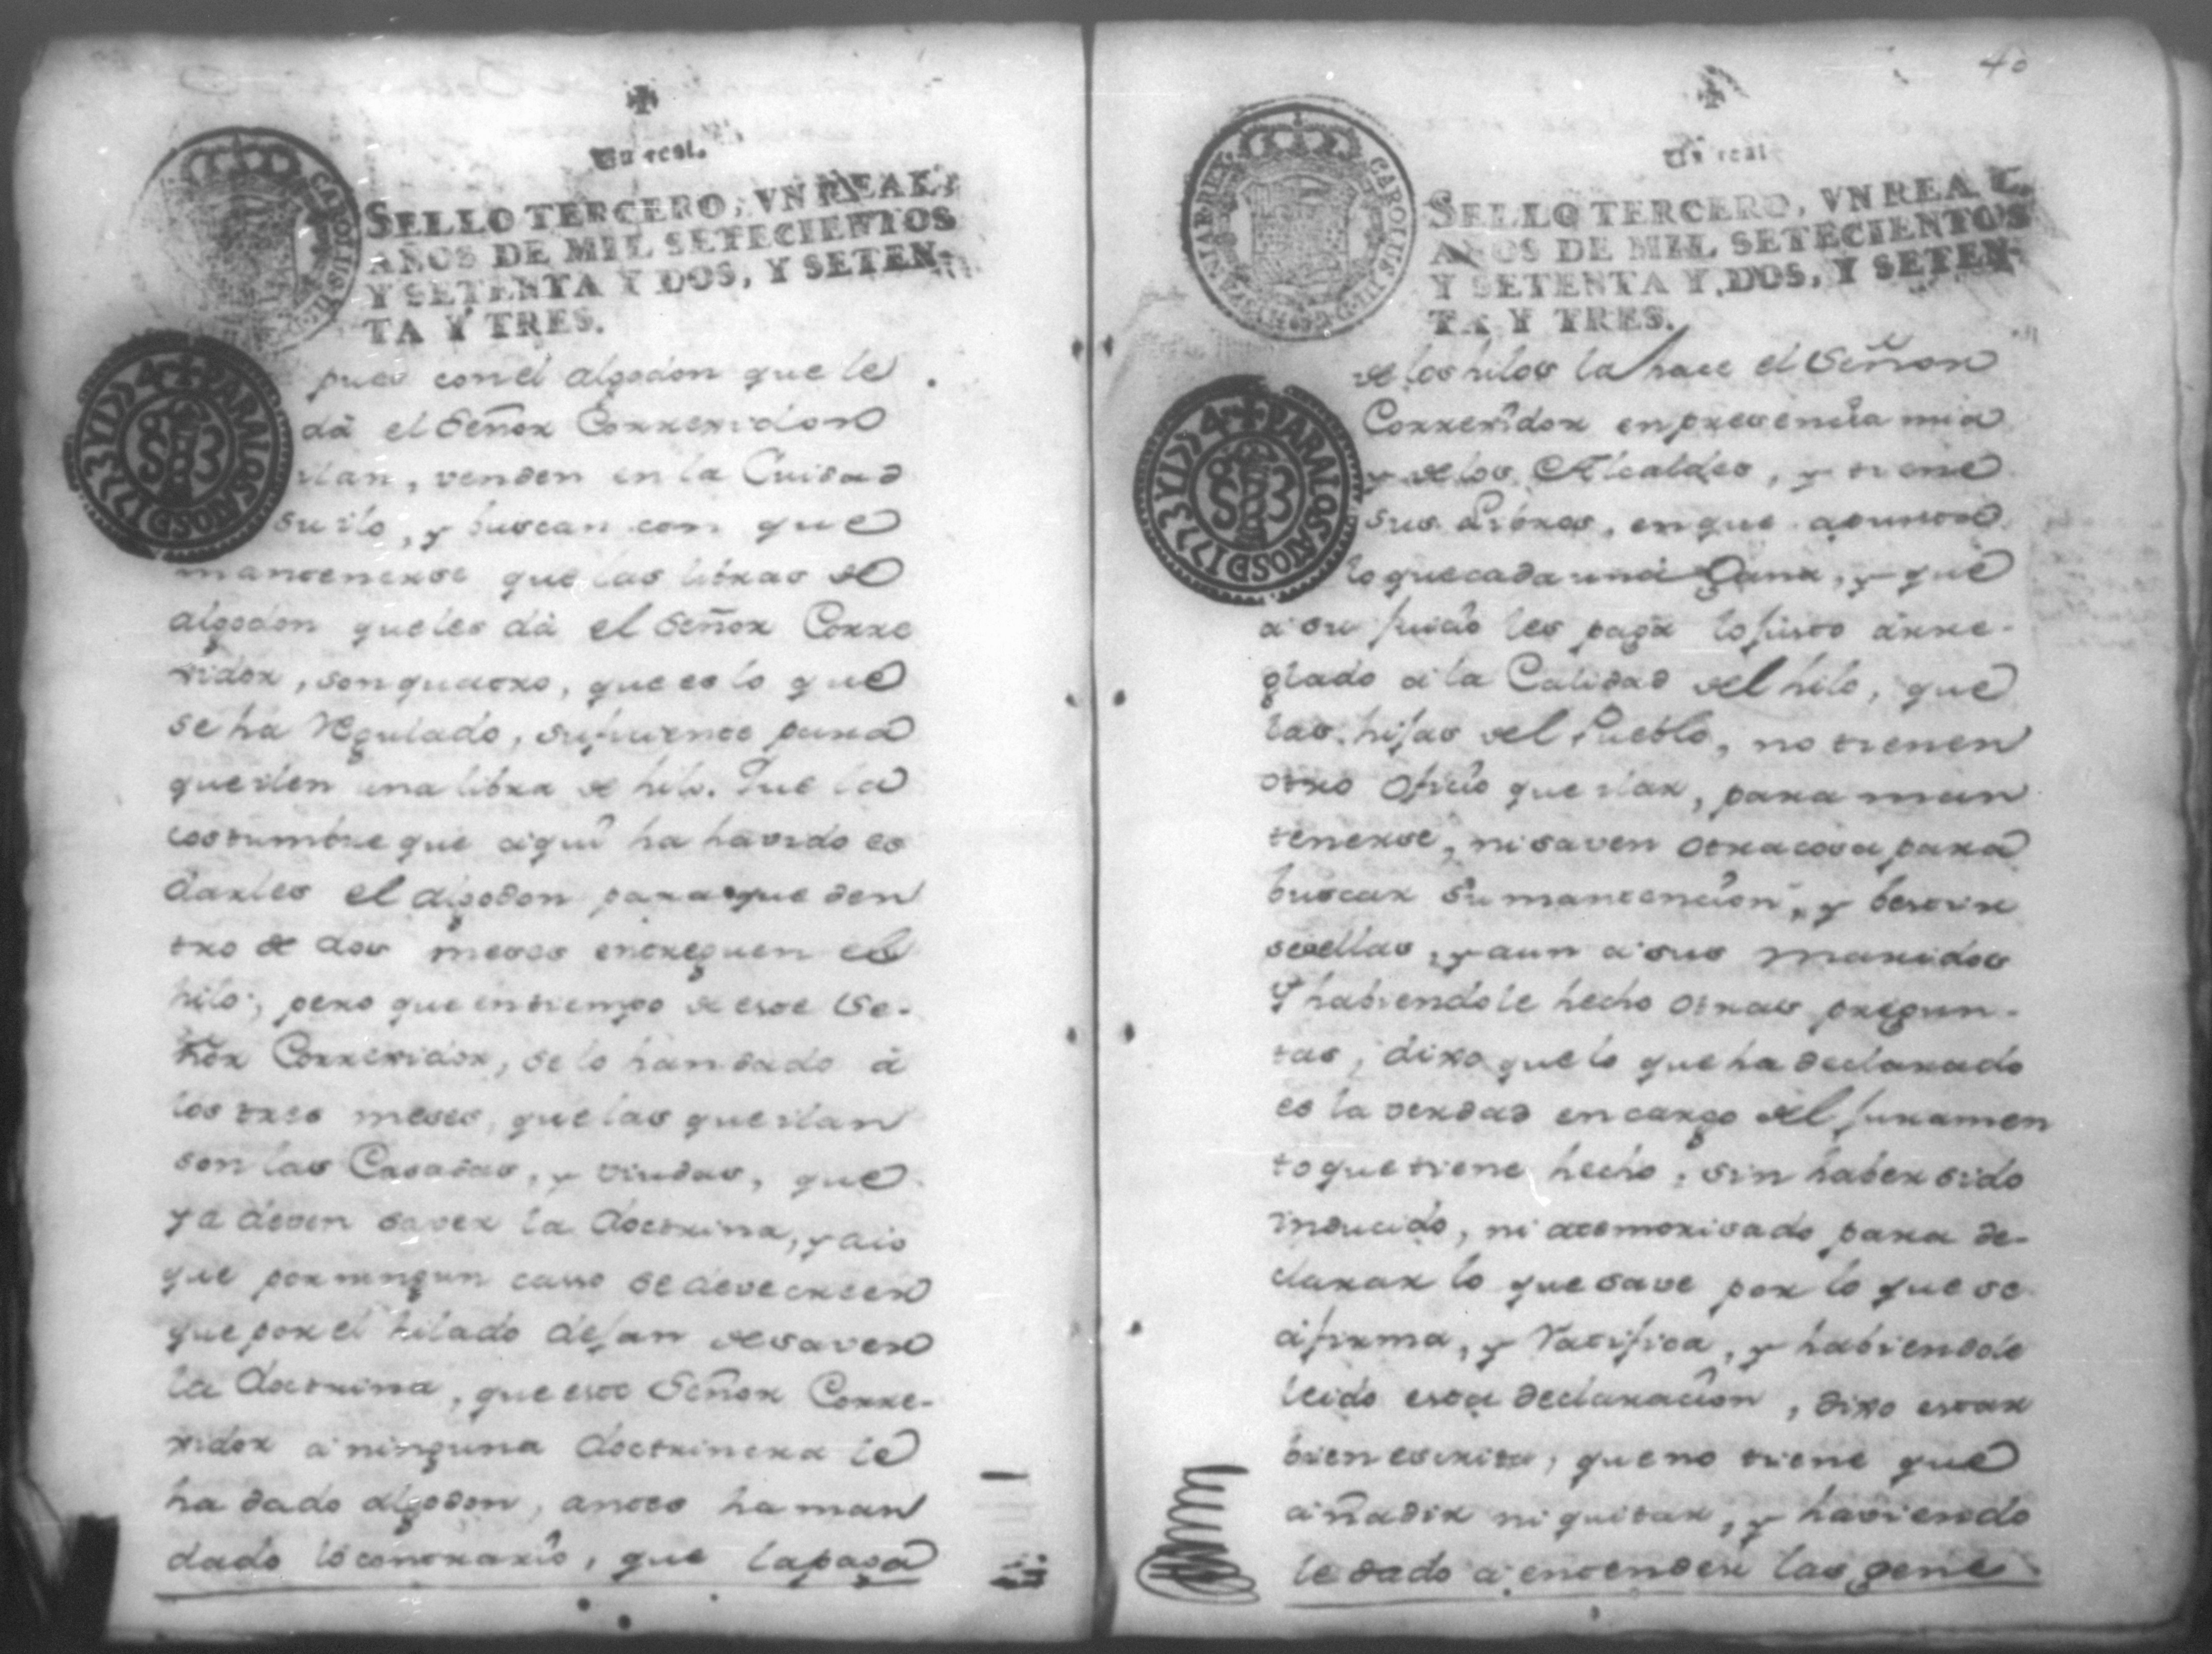 Un real.
SELLO TERCERO, VN REAL,
AÑOS DE MIL SETECIENTOS
Y SETENTA Y DOS, Y SETEN-
TA Y TRES.
CAROLUS III
PARA LOS AÑOS D 1773 Y 1774
pues con el algodon que le
dà el Señor Corregidor
ilan, venden en la Cuidad
su ilo, y buscan con que
mantenerse que las libras de
algodon que les dà el Señor Corre
gidor, son quatro, que es lo que
se ha Regulado, suficiente para
que ilen una libra de hilo. Que la
costumbre que aqui ha havido es
darles el algodon para que den
tro de dos meses entreguen el
hilo, pero que en tiempo de este Se-
ñor Corregidor, se lo han dado à
los tres meses, que las que ilan
son las Casadas, y viudas, que
ya deven saver la doctrina, y asis
que por ningun casso se deve creer
que por el hilado dejan de saver
la doctrina, que este Señor Corre-
gidor a ninguna doctrinera le
ha dado algodon, antes ha man
dado lo contrario, que la paga
40
Un real
SELLO TERCERO, VN REAL,
AÑOS DE MIL SETECIENTOS
Y SETENTA Y DOS, Y SETEN-
TA Y TRES.
CAROLUS III
PARA LOS AÑOS D 1773 Y 1774
de los hilos la hace el Señor
Corregidor en presencia mia
y de los Alcaldes, y tiene
sus Libros, en que apunta
lo que cada una Gana, y que
a su juicio les paga lo justo arre-
glado a la Calidad del hilo, que
las hijas del Pueblo, no tienen
otro oficio que ilar, para man
tenerse, ni saven otra cosa para
buscar su mantencion, y bestir
se ellas, y aun a sus maridos
Y habiendole hecho otras pregun-
tas, dixo que lo que ha declarado
es la verdad en cargo del juramen
to que tiene hecho, sin haber sido
inducido, ni atemorisado para de-
clarar lo que save por lo que se
afirma, y Ratifica, y habiendole
leido esta declaracion, dixo estar
bien escrita, que no tiene que
añadir ni quitar, y haviendo
le dado a entender las gene